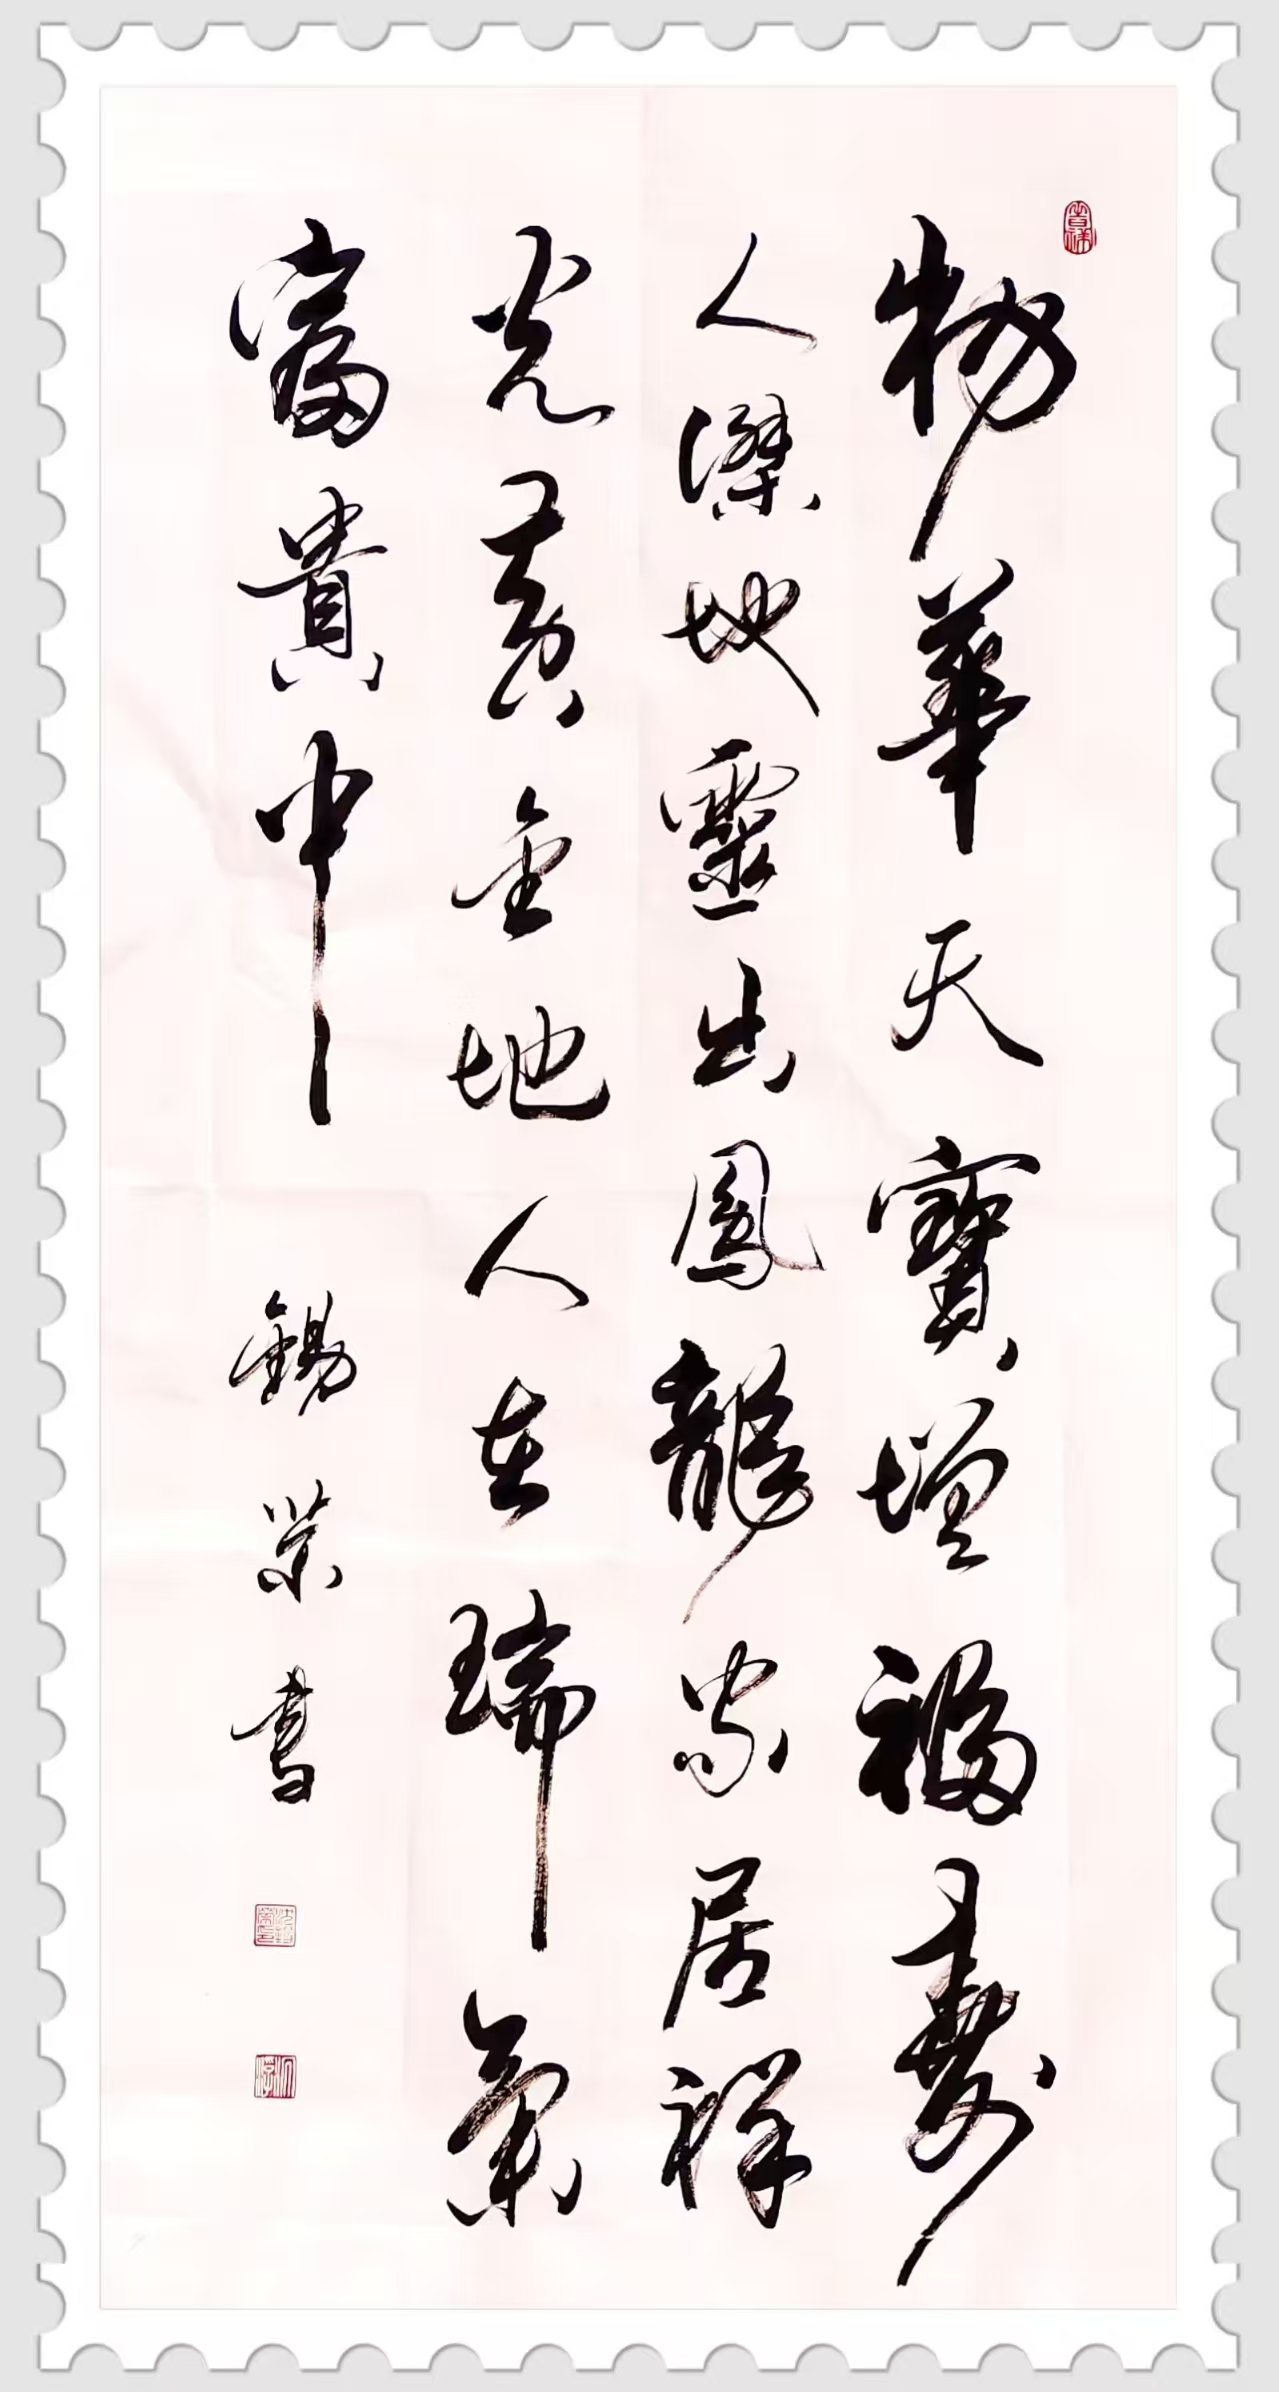 物華天寶增福壽
人傑地靈出鳳龍家居祥
光黃金地人在瑞氣
富貴中
錫榮書